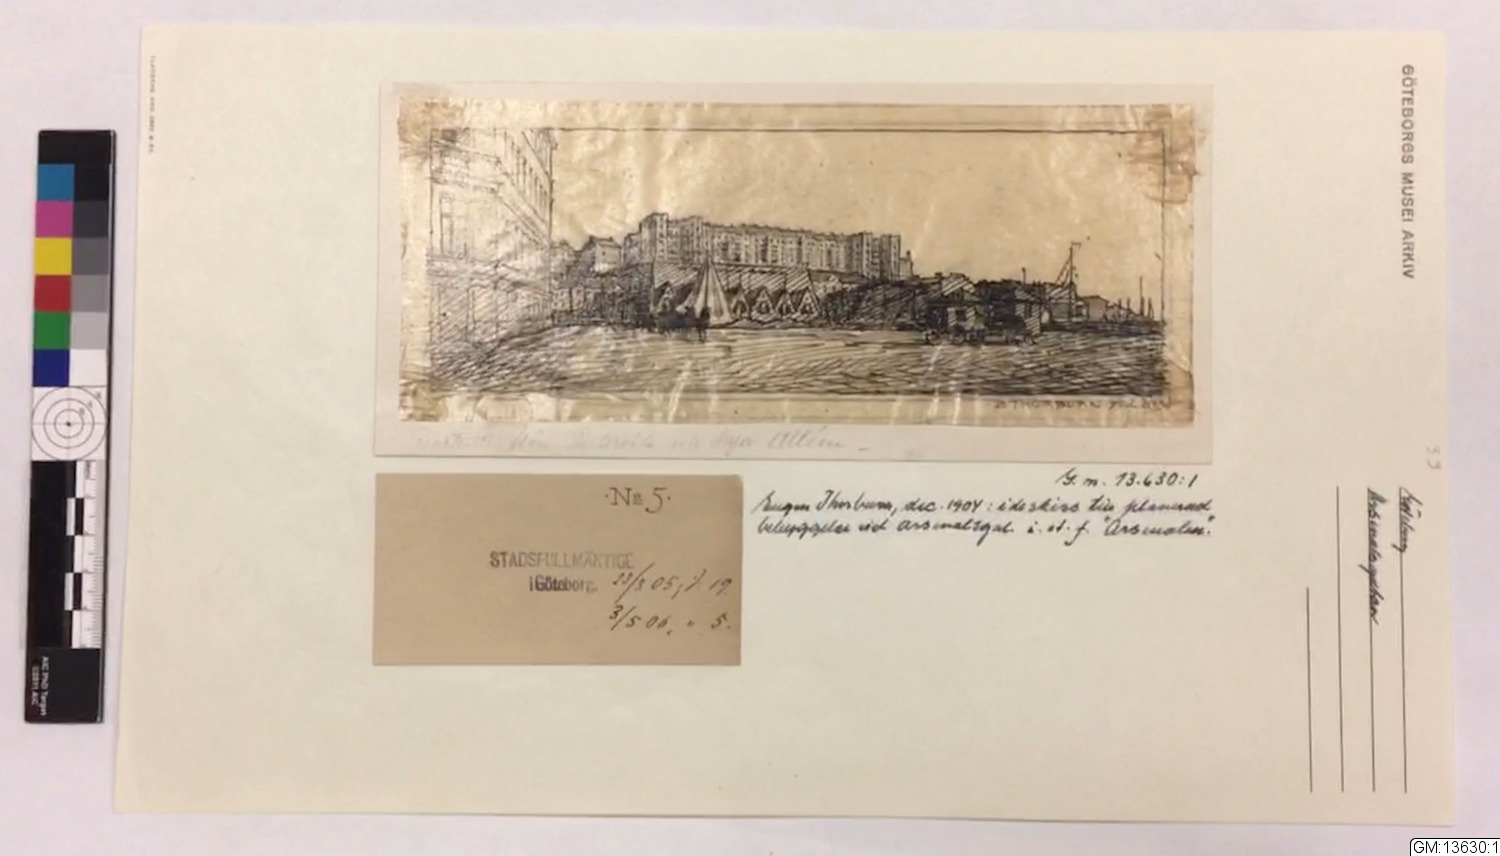 GÖTEBORGS MUSEI ARKIV
33
E THORBURN
Nya Allén
G. m. 13.630:1
Eugen Thorburn, dec. 1904: idéskiss till planerad
bebyggelse vid Arsenalsgat. i. st. f. "Arsenalen".
·No 5·
STADSFULLMÄKTIGE
i Göteborg.
05, 19.
3/5 06, " 5.
Göteborg
Arsenalsgatan
AIC PhD Target
GM:13630:1